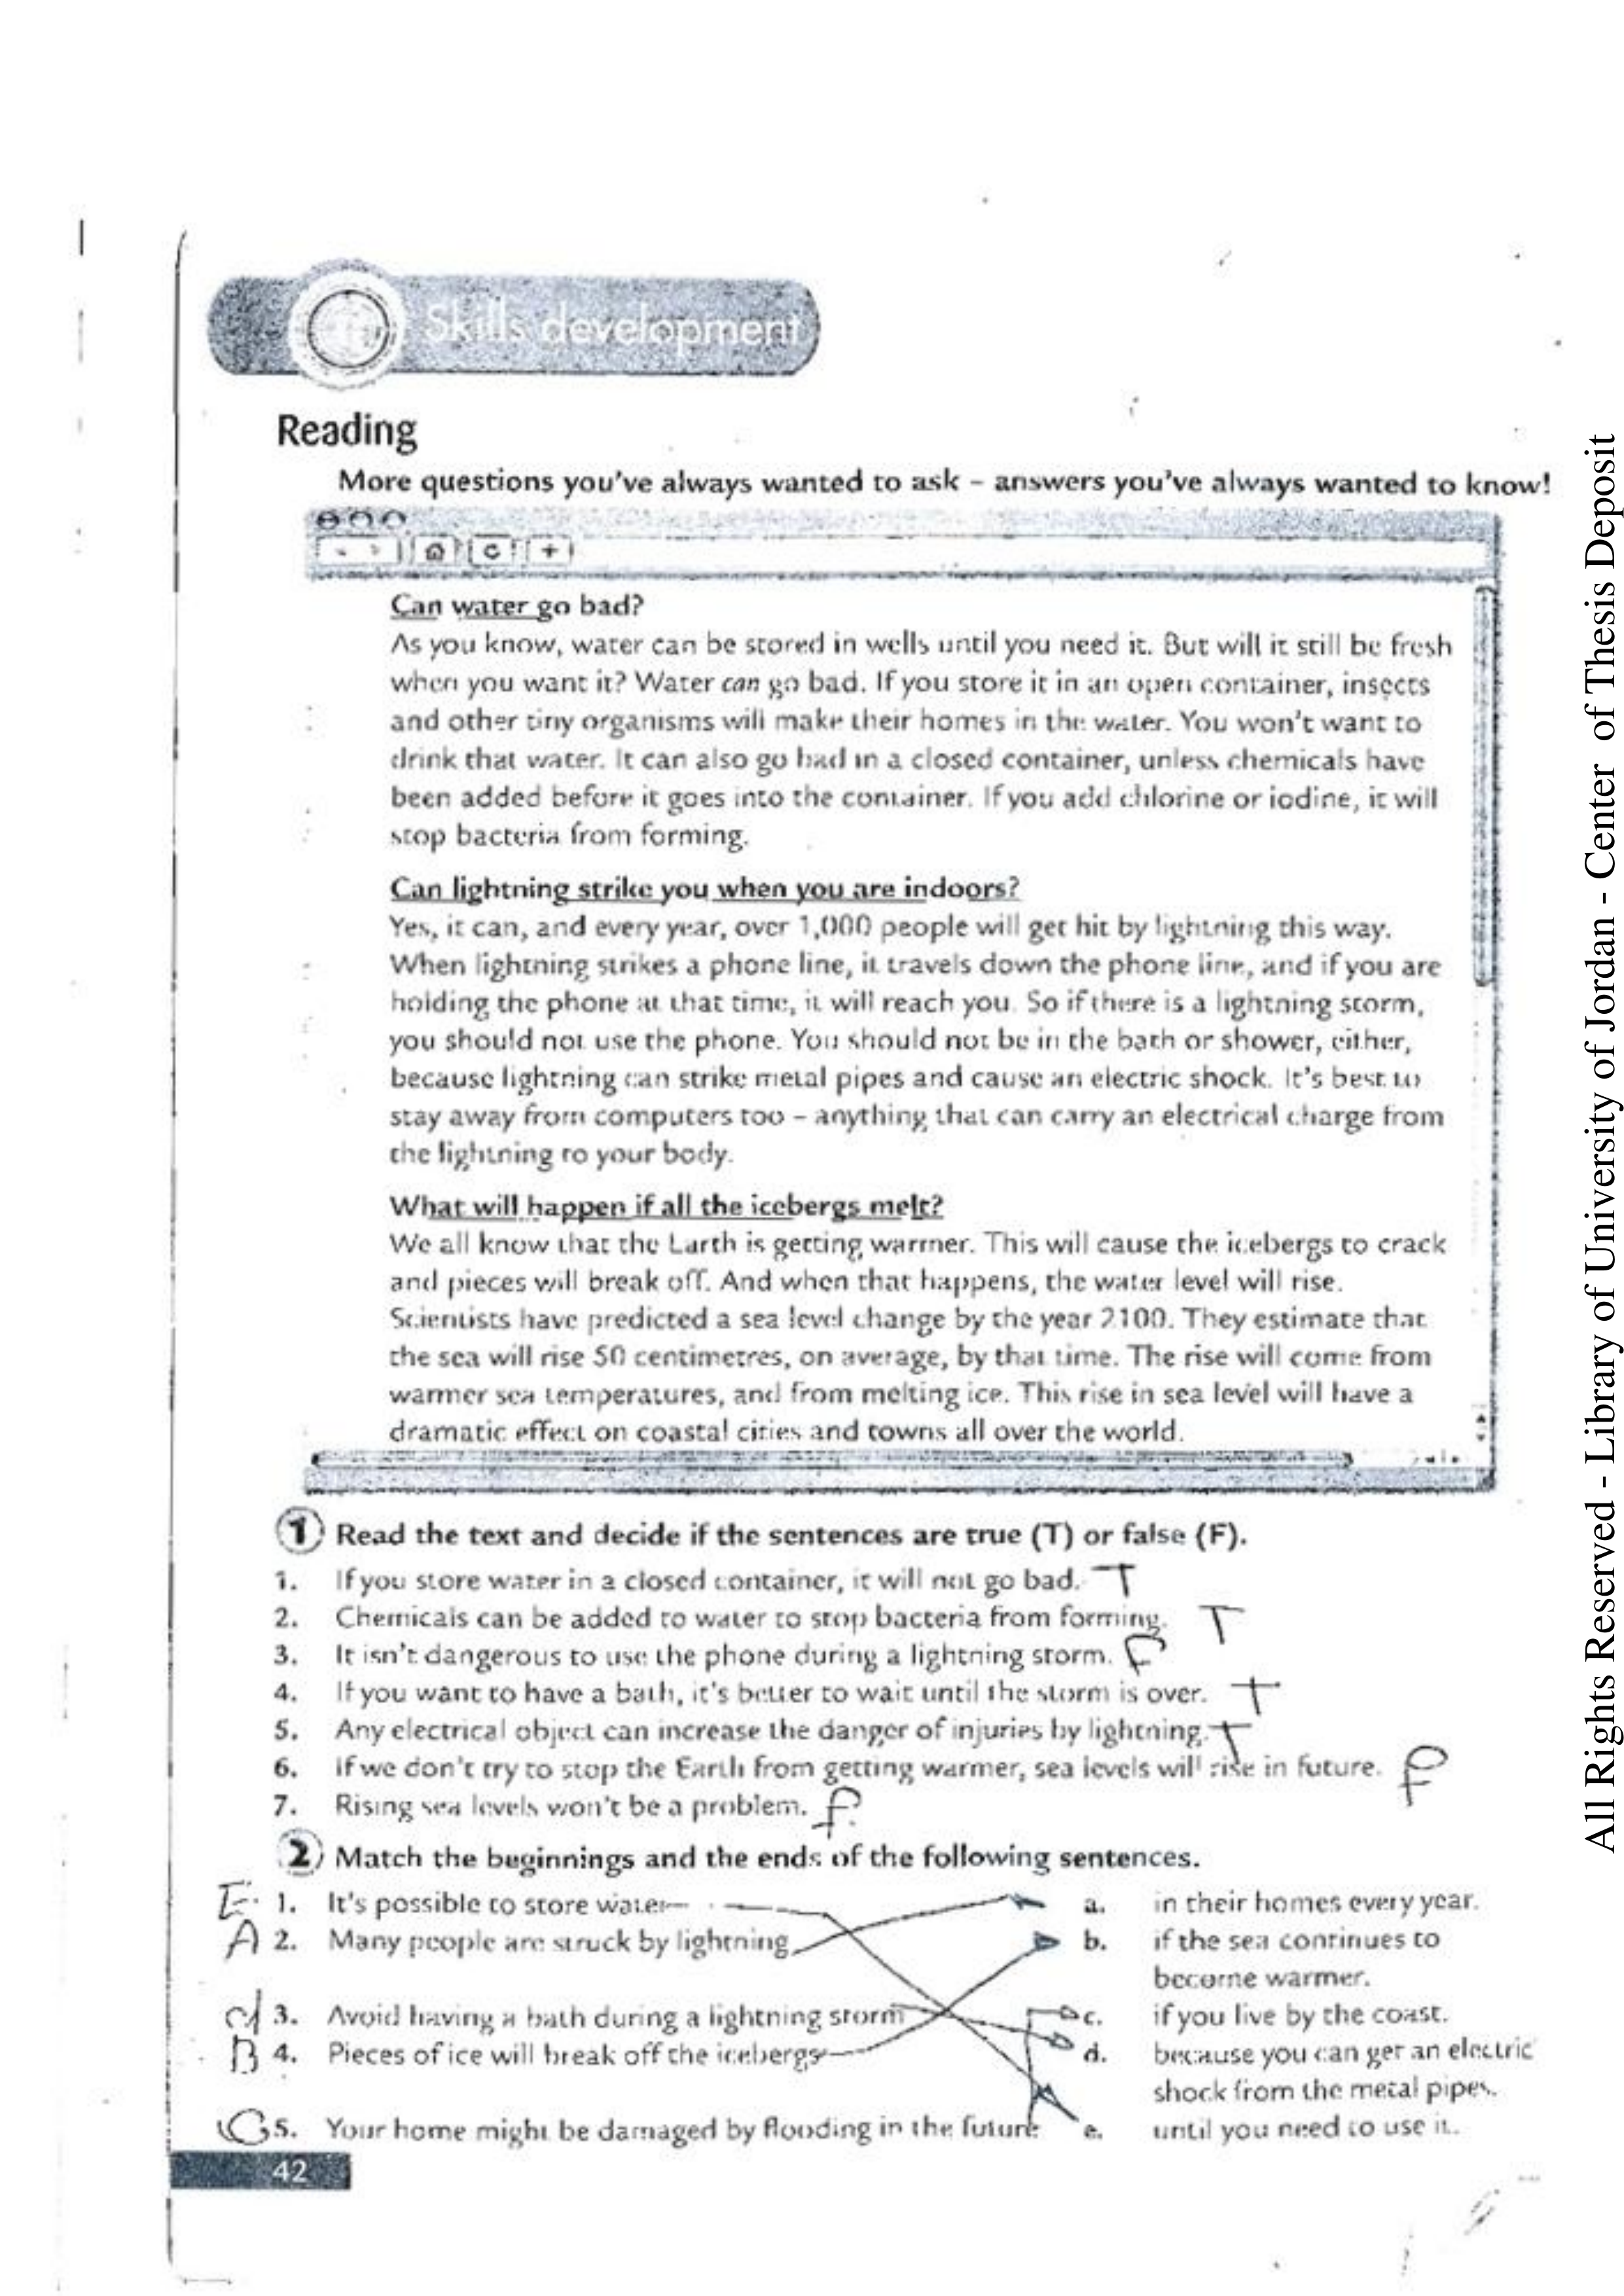 Skills development
Reading
More questions you've always wanted to ask – answers you've always wanted to know!
Can water go bad?
As you know, water can be stored in wells until you need it. But will it still be fresh
when you want it? Water can go bad. If you store it in an open container, insects
and other tiny organisms will make their homes in the water. You won't want to
drink that water. It can also go bad in a closed container, unless chemicals have
been added before it goes into the container. If you add chlorine or iodine, it will
stop bacteria from forming.
Can lightning strike you when you are indoors?
Yes, it can, and every year, over 1,000 people will get hit by lightning this way.
When lightning strikes a phone line, it travels down the phone line, and if you are
holding the phone at that time, it will reach you. So if there is a lightning storm,
you should not use the phone. You should not be in the bath or shower, either,
because lightning can strike metal pipes and cause an electric shock. It's best to
stay away from computers too – anything that can carry an electrical charge from
the lightning to your body.
What will happen if all the icebergs melt?
We all know that the Earth is getting warmer. This will cause the icebergs to crack
and pieces will break off. And when that happens, the water level will rise.
Scientists have predicted a sea level change by the year 2100. They estimate that
the sea will rise 50 centimetres, on average, by that time. The rise will come from
warmer sea temperatures, and from melting ice. This rise in sea level will have a
dramatic effect on coastal cities and towns all over the world.
1 Read the text and decide if the sentences are true (T) or false (F).
1. If you store water in a closed container, it will not go bad. T
2. Chemicals can be added to water to stop bacteria from forming. T
3. It isn't dangerous to use the phone during a lightning storm. F
4. If you want to have a bath, it's better to wait until the storm is over. T
5. Any electrical object can increase the danger of injuries by lightning. T
6. If we don't try to stop the Earth from getting warmer, sea levels will rise in future. F
7. Rising sea levels won't be a problem. F
2 Match the beginnings and the ends of the following sentences.
E 1. It's possible to store water a. in their homes every year.
A 2. Many people are struck by lightning b. if the sea continues to
become warmer.
d 3. Avoid having a bath during a lightning storm c. if you live by the coast.
B 4. Pieces of ice will break off the icebergs d. because you can get an electric
shock from the metal pipes.
C 5. Your home might be damaged by flooding in the future e. until you need to use it.
42
All Rights Reserved - Library of University of Jordan - Center of Thesis Deposit